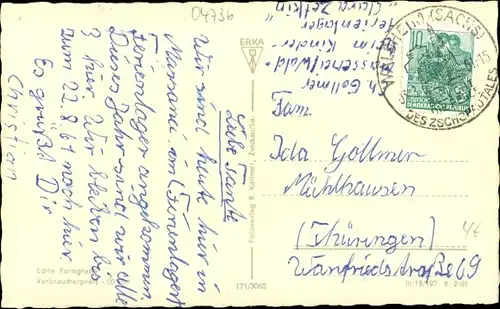 04736
Liebe Tante
Wir sind heute hier in
Ferienlager angekommen.
Dieses Jahr sind wir alle
3 hier. Wir bleiben bis
zum 22.8.61 noch hier
Es grüßt Dir
Christian
Gollmer
im Kinder-
ferienlager
"Clara Zetkin"
WALDHEIM (SACHS)
DES ZSCHOPAUTALES
10
DEUTSCHE
DEMOKRATISCHE REPUBLIK
ERKA
Fotoverlag R. Kallmer, Zwickau/Sa.
171/3062
Fam.
Ida Gollmer
Mühlhausen
(Thüringen)
Wanfriedstraße 69
4€
Echte Fotografie
Verbraucherpreis -20
III/18/197 K